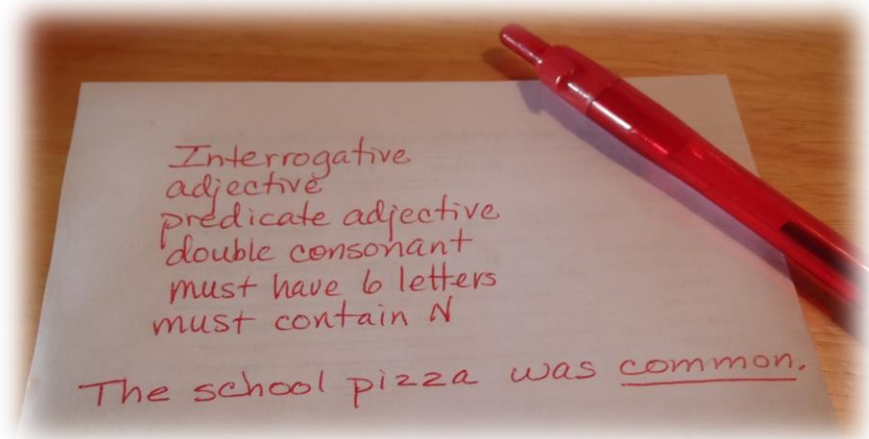 Interrogative
adjective
predicate adjective
double consonant
must have 6 letters
must contain N
The school pizza was common.